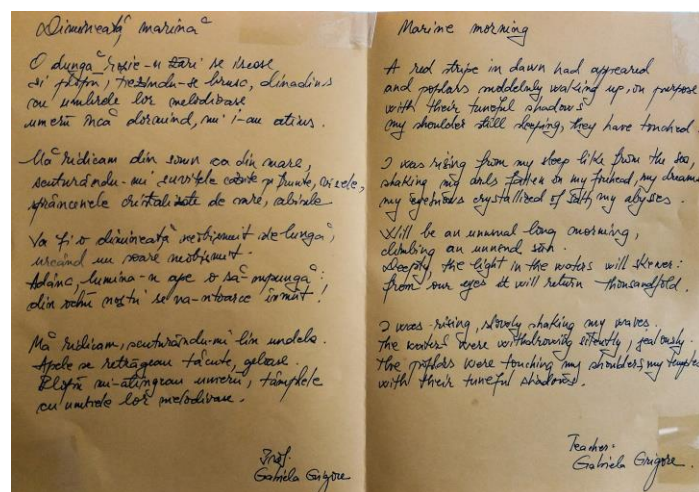 Dimineață marină
O dungă roșie-n zări se iscase
și plopii, trezindu-se brusc, dinadins
cu umbrele lor melodioase
umerii încă dormind, mi i-au atins.
Mă ridicam din somn ca din mare,
scuturându-mi șuvițele căzute pe frunte, visele,
sprâncenele cristalizate de sare, abisele
Va fi o dimineață neobișnuit de lungă,
urcând un soare neobișnuit.
Adânc, lumina-n ape o să-mpungă:
din ochii noștri se va-ntoarce înmiit!
Mă ridicam, scuturându-mi lin undele.
Apele se retrăgeau tăcute, geloase.
Plopii mi-atingeau umerii, tâmplele
cu umbrele lor melodioase.
Prof.
Gabriela Grigore
Marine morning
A red stripe in dawn had appeared
and poplars suddenly waking up, on purpose
with their tuneful shadows
my shoulder still sleeping, they have touched.
I was rising from my sleep like from the sea,
shaking my curls fallen on my forhead, my dreams
my eyebrows crystallized of salt, my abysses.
Will be an unusual long morning,
climbing an sun.
Deeply, the light in the waters will skewer:
from our eyes it will return thousandfold.
I was rising, slowly shaking my waves.
The waters were withdrowing silently, jealously.
The poplars were touching my shoulders, my temples
with their tuneful shadows.
Teacher:
Gabriela Grigore